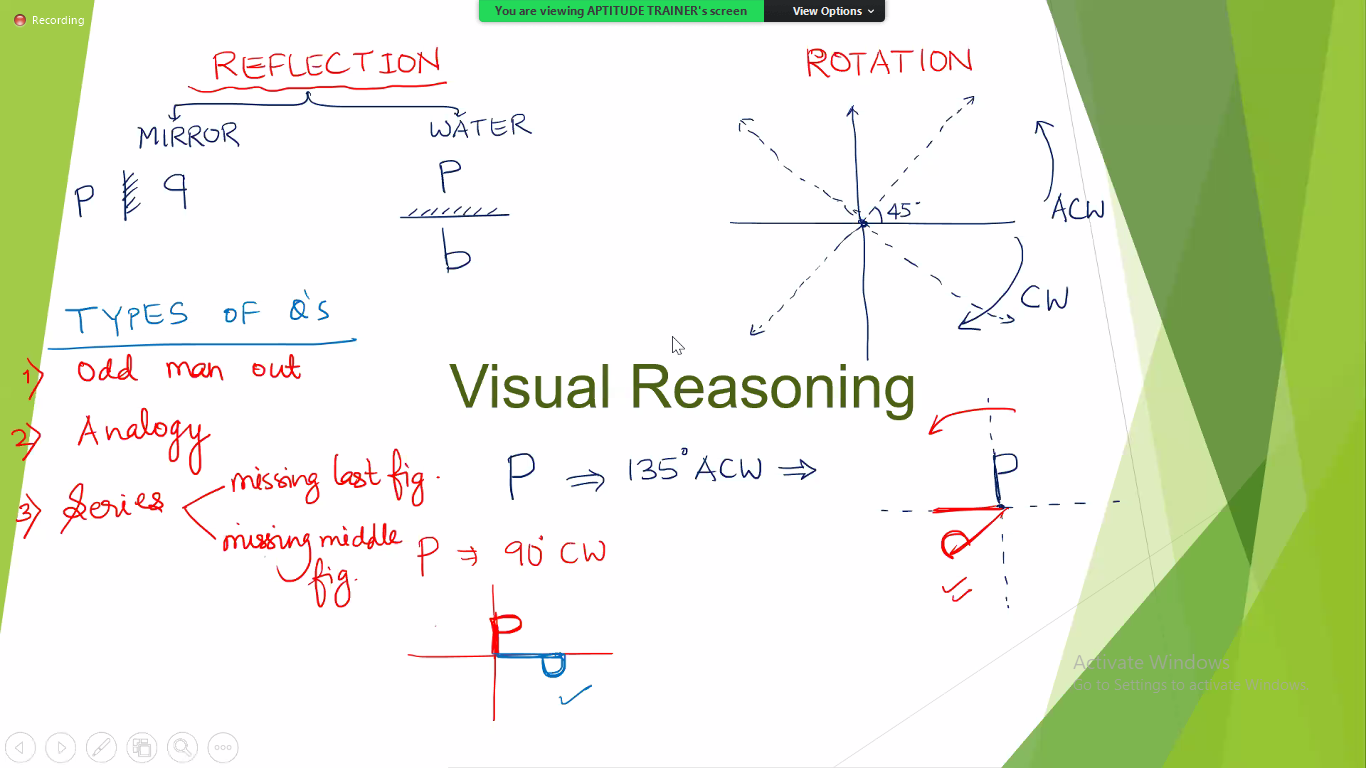 Recording
You are viewing APTITUDE TRAINER's screen
View Options
REFLECTION
MIRROR
WATER
P q
P
b
ROTATION
45°
ACW
CW
TYPES OF Q's
1) Odd man out
2) Analogy
3) Series
missing last fig.
missing middle
fig.
Visual Reasoning
P ⇒ 135° ACW ⇒
P
P ⇒ 90° CW
P
Activate Windows
Go to Settings to activate Windows.